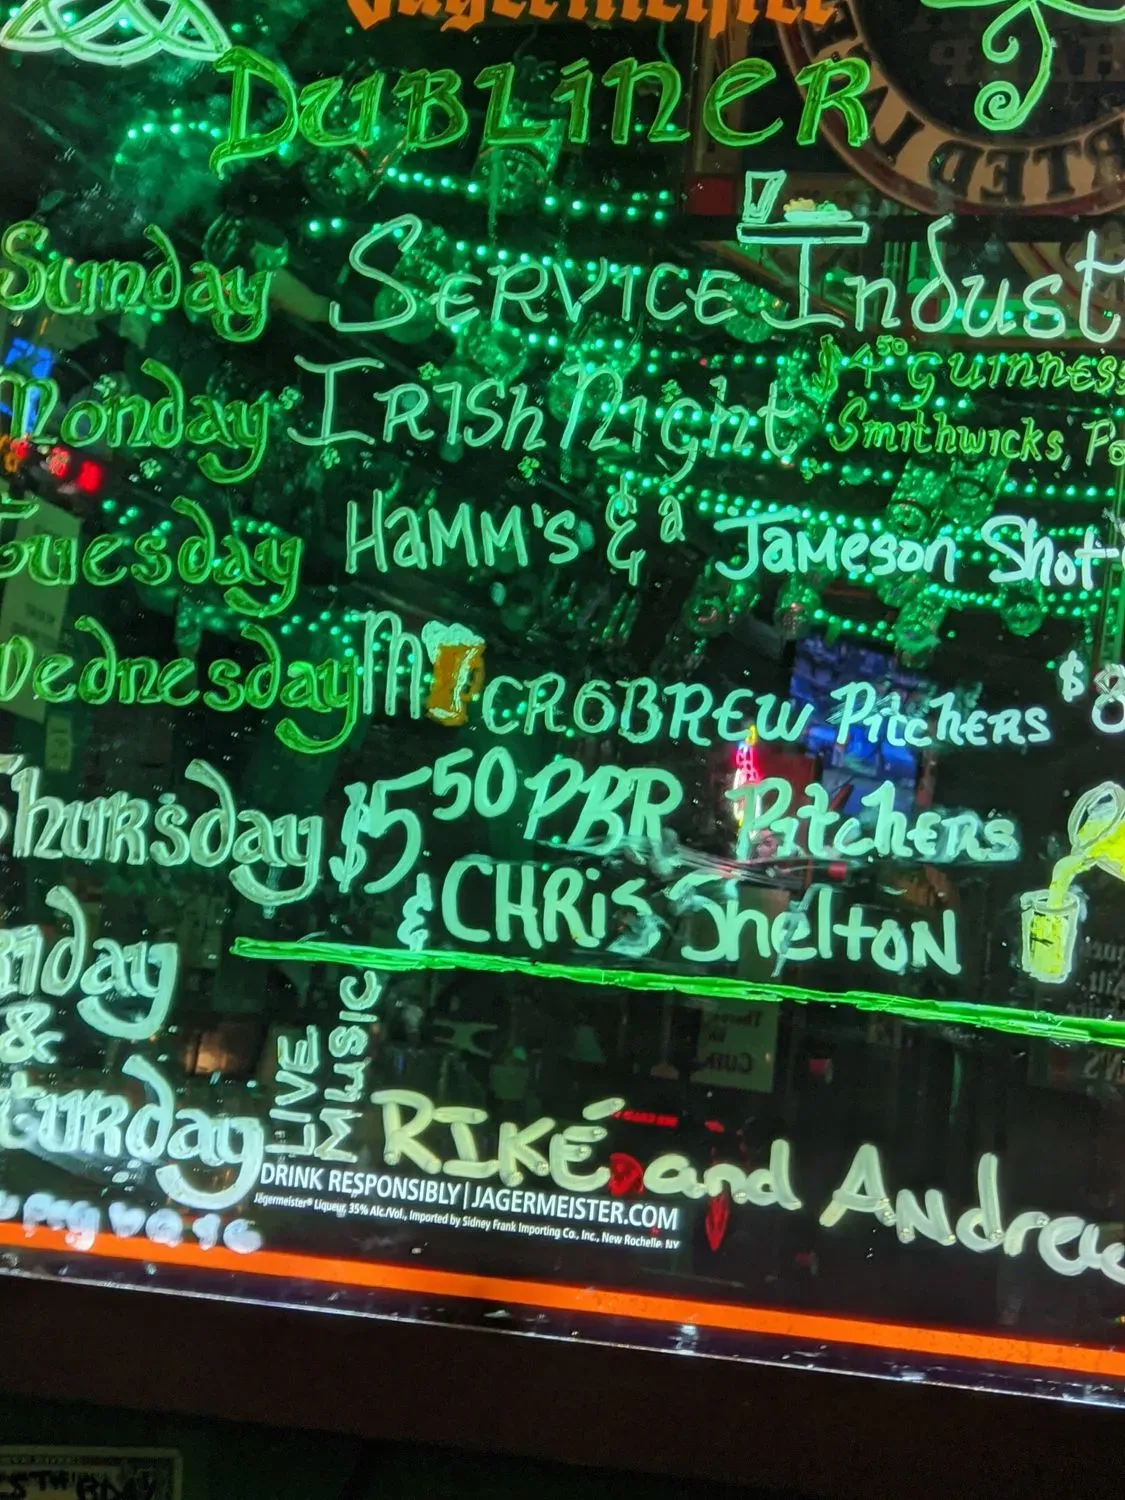 Jägermeister
DUBLINER
Sunday SERVICE Indust
Monday IRISh Night $4⁵⁰ GUINNESS
Smithwicks, Po
Tuesday HAMM's & a Jameson Shot
Wednesday MICROBREW Pitchers $8
Thursday $5⁵⁰ PBR Pitchers
& CHRis Shelton
Friday
&
Saturday LIVE MUSIC RIKÉ and Andrew
DRINK RESPONSIBLY | JAGERMEISTER.COM
Jägermeister® Liqueur, 35% Alc./Vol., Imported by Sidney Frank Importing Co., Inc., New Rochelle, NY